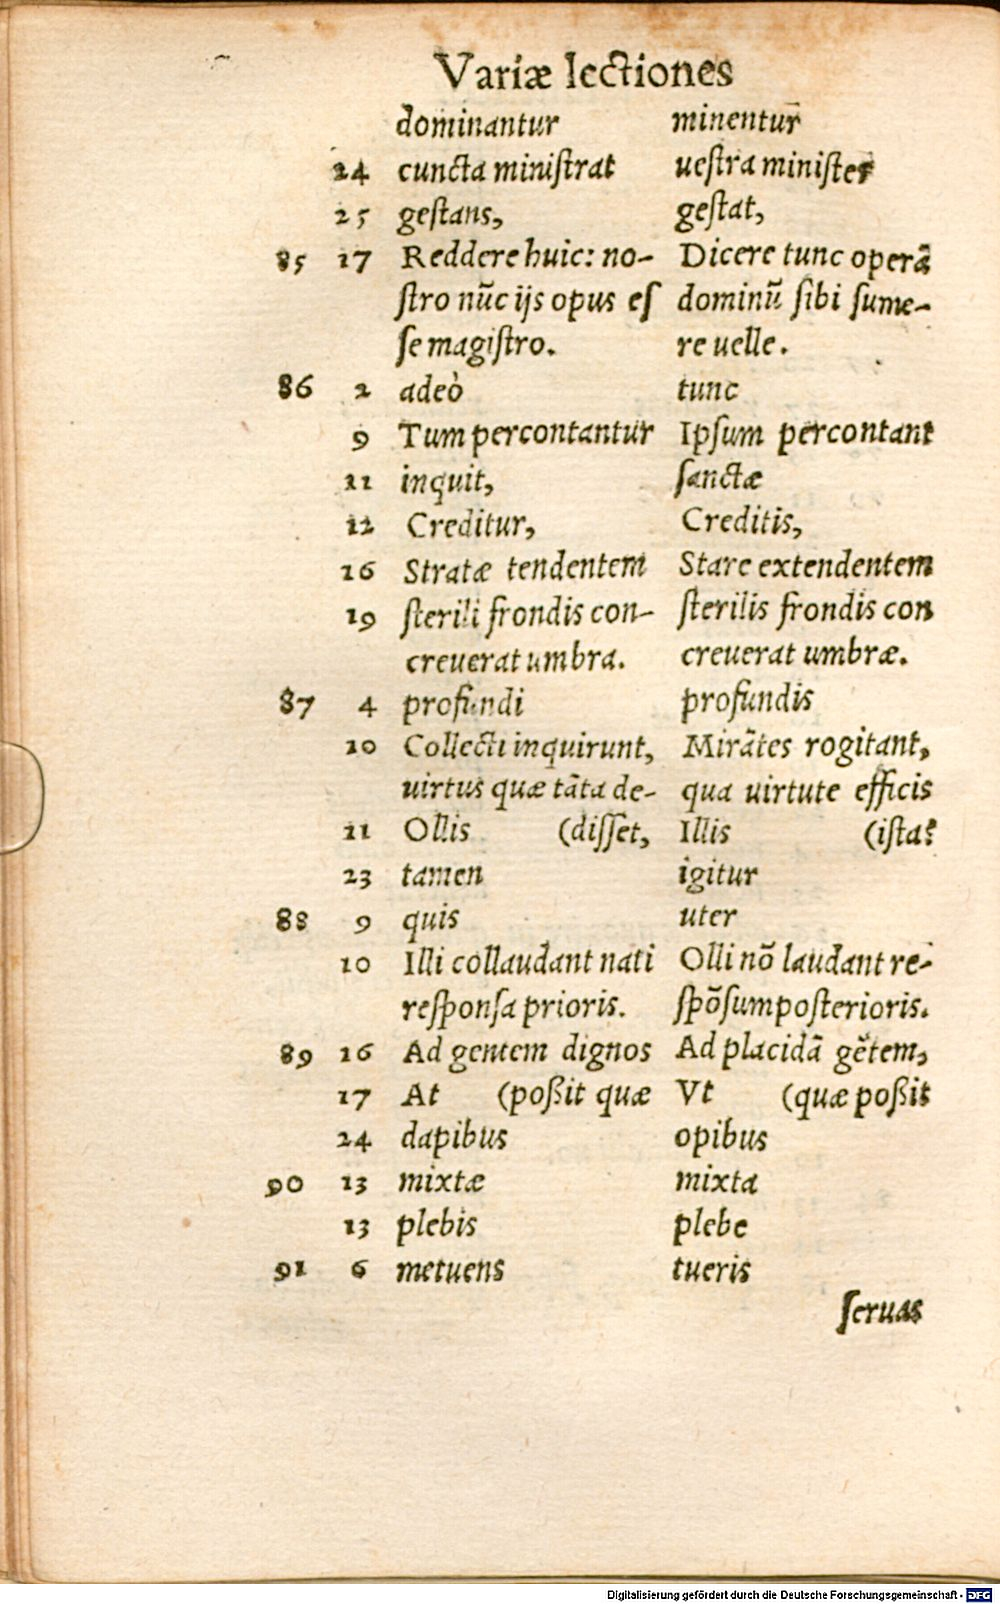 Variæ lectiones
dominantur minentur
24 cuncta ministrat uestra minister
25 gestans, gestat,
85 17 Reddere huic: no- Dicere tunc operā
stro nūc ijs opus es dominū sibi sume-
se magistro. re uelle.
86 2 adeò tunc
9 Tum percontantur Ipsum percontant
11 inquit, sanctæ
12 Creditur, Creditis,
16 Stratæ tendentem Stare extendentem
19 sterili frondis con- sterilis frondis con
creuerat umbra. creuerat umbræ.
87 4 profundi profundis
10 Collecti inquirunt, Mirātes rogitant,
uirtus quæ tāta de- qua uirtute efficis
11 Ollis (disset, Illis (ista?
23 tamen igitur
88 9 quis uter
10 Illi collaudant nati Olli nō laudant re-
responsa prioris. spōsum posterioris.
89 16 Ad gentem dignos Ad placidā gētem,
17 At (poßit quæ Vt (quæ poßit
24 dapibus opibus
90 13 mixtæ mixta
13 plebis plebe
91 6 metuens tueris
seruas
Digitalisierung gefördert durch die Deutsche Forschungsgemeinschaft - DFG